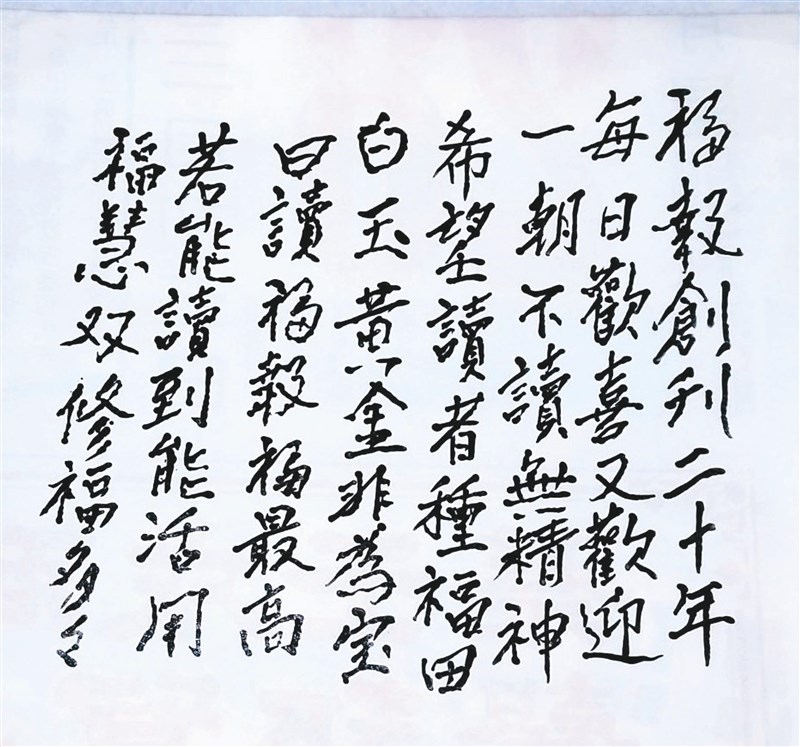 福報創刊二十年
每日歡喜又歡迎
一朝不讀無精神
希望讀者種福田
白玉黃金非為宝
日讀福報福最高
若能讀到能活用
福慧双修福多々